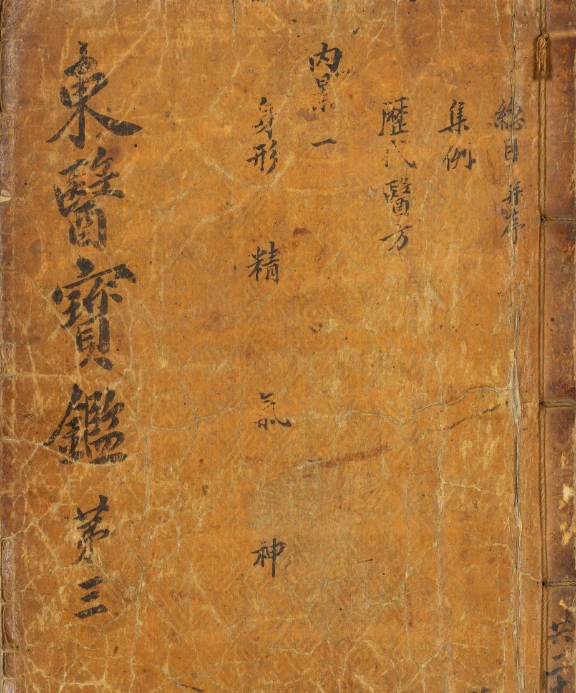 總目 并序
集例
歷代醫方
內景一
身形 精 氣 神
東醫寶鑑 第三
共二